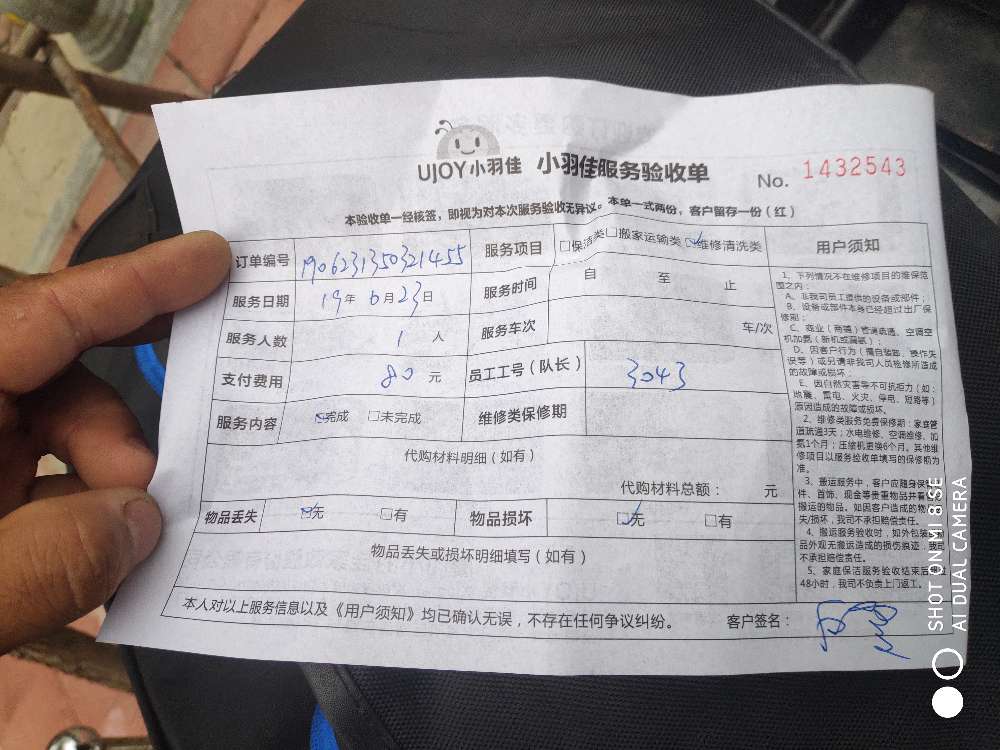 UJOY小羽佳 小羽佳服务验收单 No. 1432543
本验收单一经核签，即视为对本次服务验收无异议。本单一式两份，客户留存一份（红）
订单编号 1906231350321455 服务项目 □保洁类□搬家运输类☑维修清洗类
服务日期 19年 6月23日 服务时间 自 至 止
服务人数 1 人 服务车次 车/次
支付费用 80 元 员工工号（队长） 3043
服务内容 ☑完成 □未完成 维修类保修期
代购材料明细（如有）
代购材料总额： 元
物品丢失 ☑无 □有 物品损坏 ☑无 □有
物品丢失或损坏明细填写（如有）
本人对以上服务信息以及《用户须知》均已确认无误，不存在任何争议纠纷。 客户签名：
用户须知
1、下列情况不在维修项目的维保范
围之内：
A、非我司员工提供的设备或部件；
B、设备或部件本身已经超过出厂保
修期；
C、商业（商铺）管道疏通、空调空
机加氨（新机或漏氨）；
D、因客户行为（擅自装卸、操作失
误等）或另请非我司人员检修所造成
的故障或损坏；
E、因自然灾害等不可抗拒力（如：
地震、雷电、火灾、停电、短路等）
原因造成的故障或损坏。
2、维修类服务免费保修期：家庭管
道疏通3天；水电维修、空调维修、加
氨1个月；压缩机更换6个月。其他维
修项目以服务验收单填写的保修期为
准。
3、搬运服务中，客户应随身保
件、首饰、现金等贵重物品并看
搬运的物品。如因客户造成的物
失/损坏，我司不承担赔偿责任。
4、搬运服务验收时，如外包装
品外观无搬运造成的损伤痕迹，我司
不承担赔偿责任。
5、家庭保洁服务验收结束后
48小时，我司不负责上门返工。
SHOT ON MI 8 SE
AI DUAL CAMERA